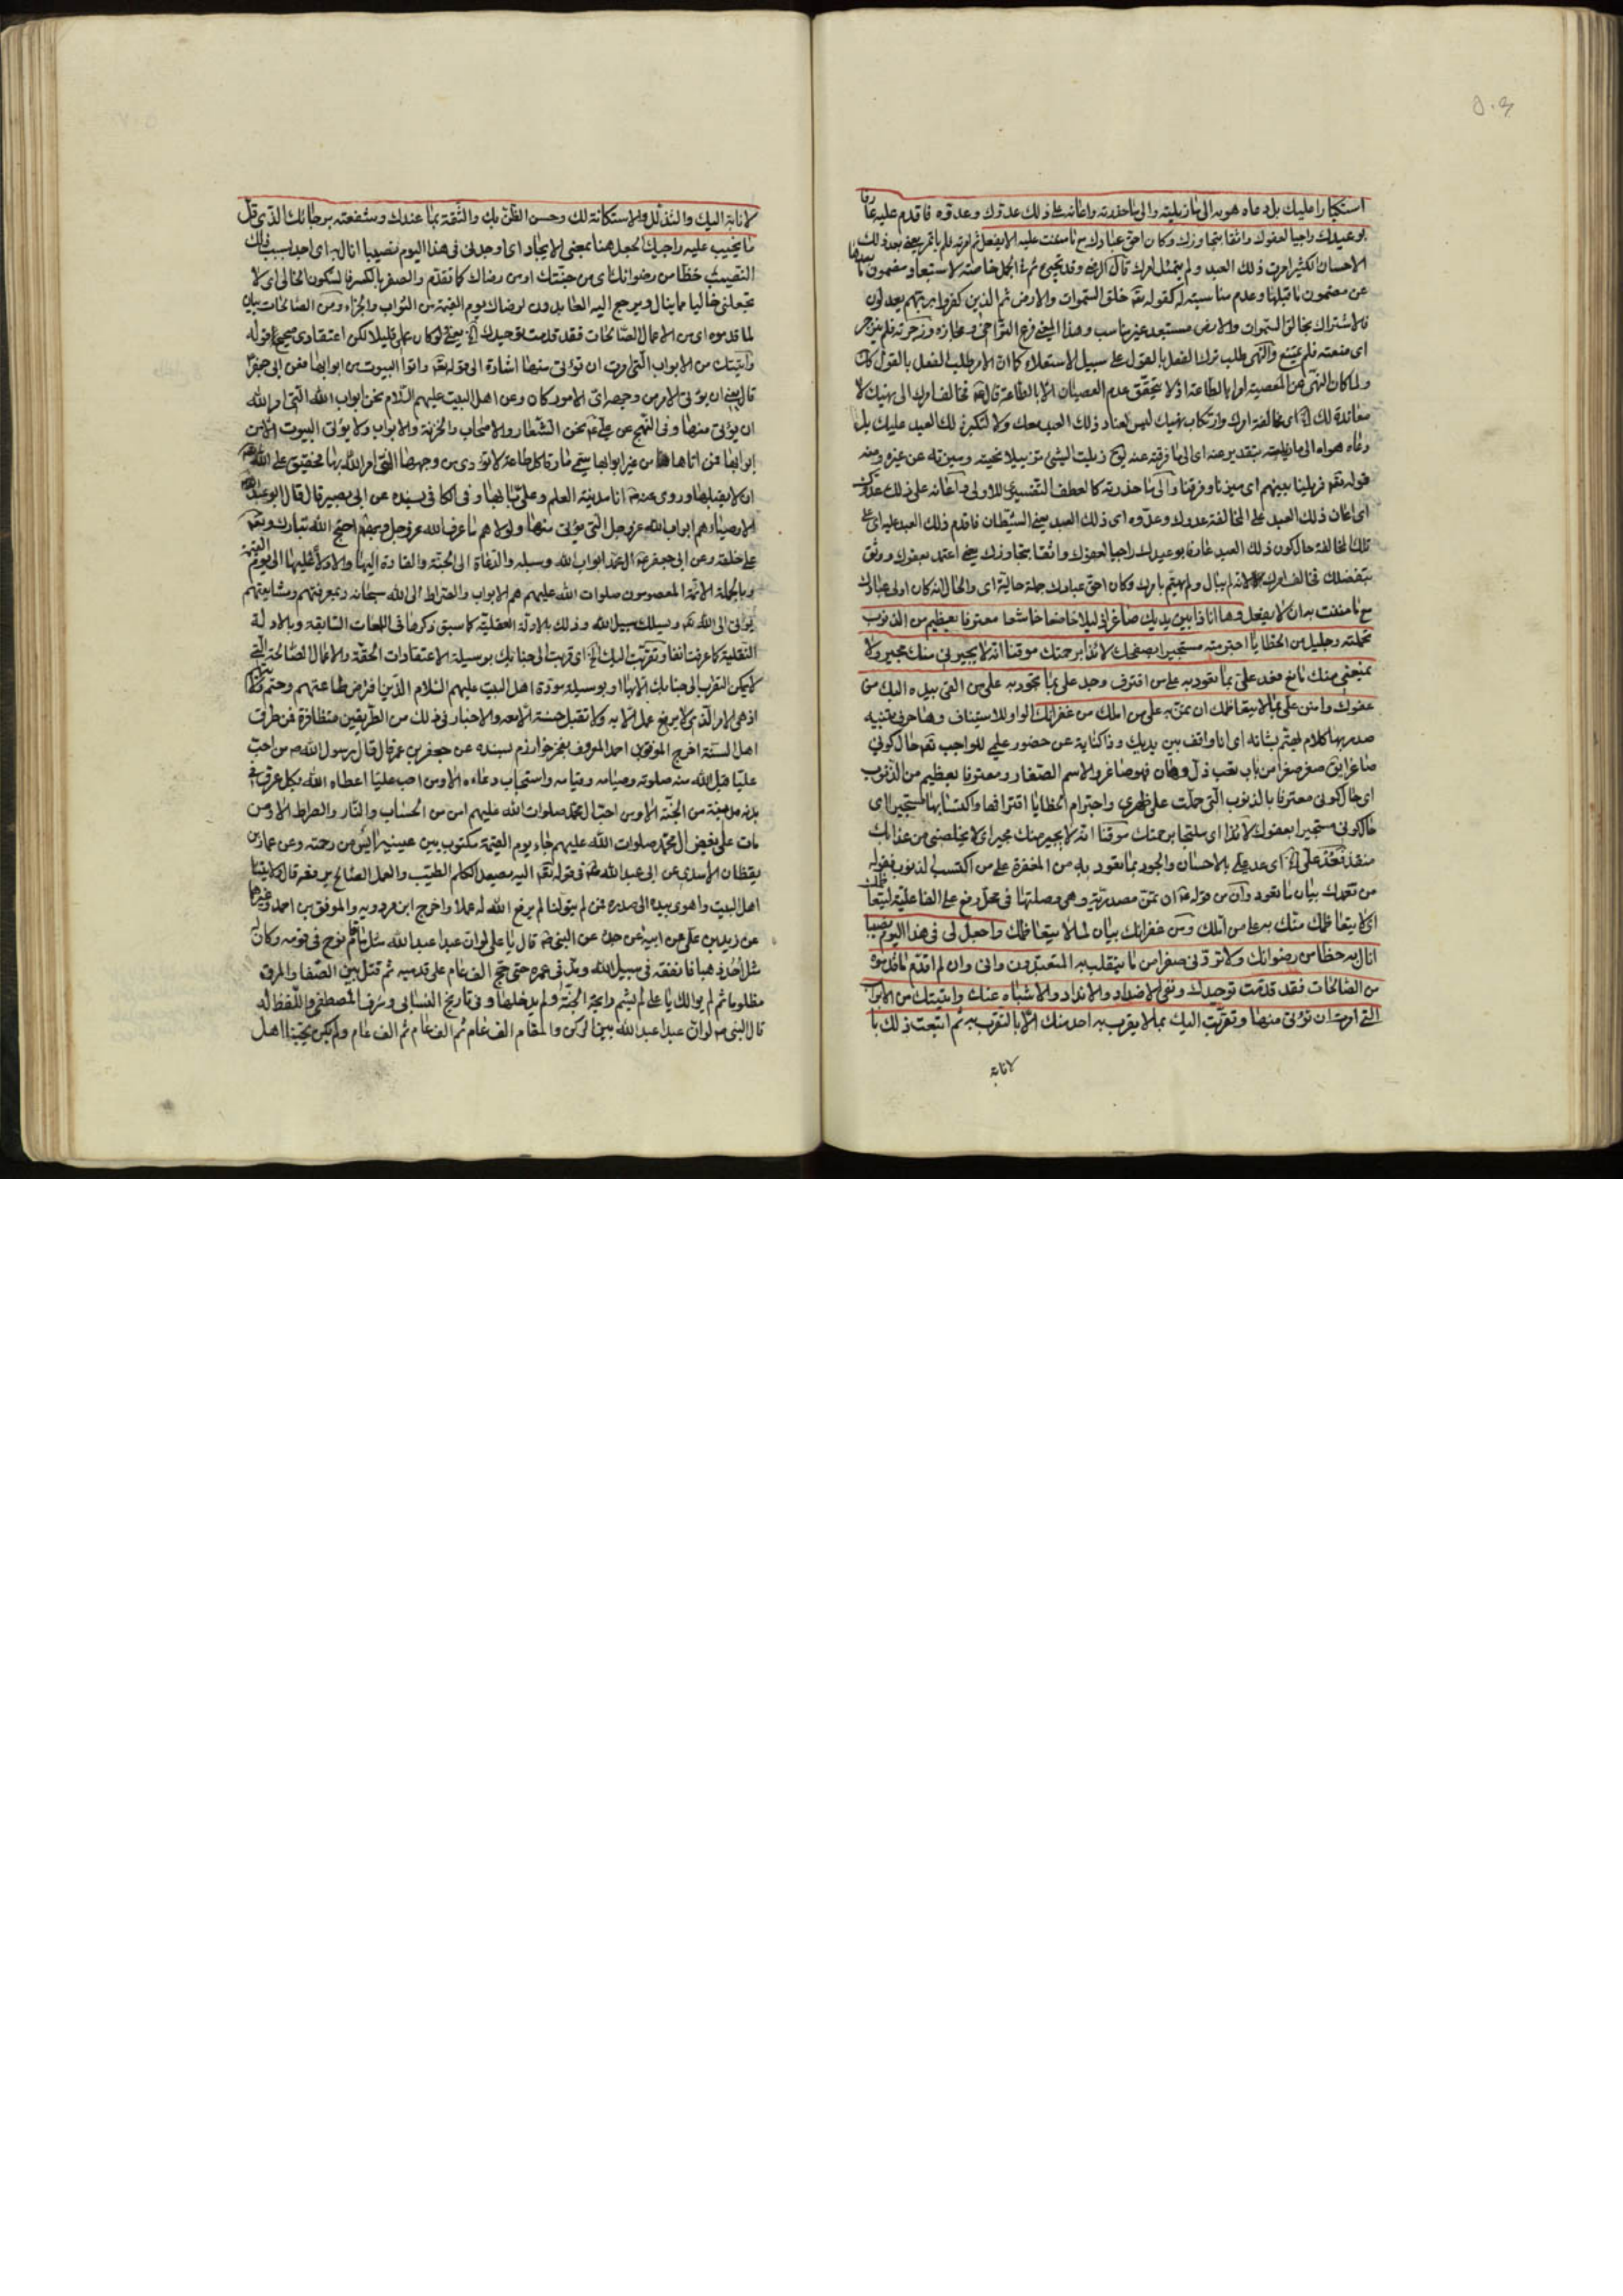 استكبارا عليك بل دعاه هويه الى ما زيلته والى ما حذرته واعانه على ذلك عدوك وعدوه فاقدم عليه عارفا
بوعيدك راجيا لعفوك واثقا بتجاوزك وكان احق عبادك مع ما مننت عليه الا يفعل ثم امرته فلم ياتمر يعني بعد ذلك
الاحسان الكثير امرت ذلك العبد ولم يمتثل امرك قال الرضي وقد تجيئ ثم في الجمل خاصة لاستبعاد مضمون ما بعدها
عن مضمون ما قبلها وعدم مناسبته له كقوله تعالى خلق السموات والارض ثم الذين كفروا بربهم يعدلون
فالاشراك بخالق السموات والارض مستبعد غير مناسب وهذا المعنى فرع التراخي ومجازه وزجرته فلم ينزجر
اى منعته فلم يمتنع والنهى طلب ترك الفعل بالقول على سبيل الاستعلاء كما ان الامر طلب الفعل بالقول كذلك
ولما كان النهى عن المعصية امرا بالطاعة اذ لا يتحقق عدم العصيان الا بالطاعة قال فخالف امرك الى نهيك لا
معاندة لك اى مخالفة امرك وارتكاب نهيك ليس لعناد ذلك العبد معك ولا لتكبره لك العبد عليك بل
دعاه هواه الى ما زيلته بتقدير عنه اى الى ما فرقته عنه لوح زيلت الشيئ تزييلا نحيته وميزته عن غيره ومنه
قوله تعالى فزيلنا بينهم اى ميزنا وفرقنا والى ما حذرته كالعطف التفسيرى للاولى واعانه على ذلك عدوك
اى اعان ذلك العبد على المخالفة عدوك وعدوه اى ذلك العبد يعني الشيطان فاقدم ذلك العبد عليه اى على
تلك المخالفة حالكون ذلك العبد عارفا بوعيدك راجيا لعفوك واثقا بتجاوزك يعني اعتمد بعفوك ووثق
بتفضلك فخالف امرك لانه لم يبال ولم يهتم بامرك وكان احق عبادك جملة حالية اى والحال انه كان اولى عبادك
مع ما مننت به ان لا يفعل وها انا ذا بين يديك صاغرا ذليلا خاضعا خاشعا معترفا بعظيم من الذنوب
تحملته وجليل من الخطايا اجترمته مستجيرا بصفحك لائذا برحمتك موقنا انه لا يجيرني منك مجير ولا
يمنعني منك مانع فعد علي بما تعود به على من اقترف وجد علي بما تجود به على من القى بيده اليك من
عفوك وامنن علي بما لا يتعاظمك ان تمن به على من املك من غفرانك الواو للاستيناف وها حرف تنبيه
صدر بها الكلام ليهتم بشانه اى انا واقف بين يديك وذا كناية عن حضور علمي للواجب تعالى حال كوني
صاغرا يق صغر صغرا من باب تعب ذل وهان فهو صاغر والاسم الصغار ومعترفا بعظيم من الذنوب
اى حال كونى معترفا بالذنوب التى حملت على ظهرى واجترام الخطايا اقترافها واكتسابها مستجيرا اى
حالكونى مستجيرا بعفوك لائذا اى ملتجيا برحمتك موقنا انه لا يجير منك مجير اى لا يخلصنى من عذابك
منقذ فعد علي اى عد علي بالاحسان والجود بما تعود به من المغفرة على من اكتسب الذنوب فقوله
من تغمدك بيان ما تعود وان من قوله ان تمن مصدرية وهى وصلتها فى محل رفع على الفاعلية ليتعاظمك
اى لا يتعاظمك منك به على من املك ومن غفرانك بيان لما لا يتعاظمك واجعل لى فى هذا اليوم نصيبا
انال به حظا من رضوانك ولا تردنى صفرا من ما ينقلب به المتعبدون وانى وان لم اقدم ما قدموه
من الصالحات فقد قدمت توحيدك ونفى الاضداد والانداد والاشباه عنك واتيتك من الابواب
التى امرت ان تؤتى منها وتقربت اليك بما لا يقرب به احد منك الا بالتقرب به ثم اتبعت ذلك با
لانابة
لانابة اليك والتذلل والاستكانة لك وحسن الظن بك والثقة بما عندك وشفعته برجائك الذى قل
ما يخيب عليه راجيك الجعل هنا بمعنى الايجاد اى اوجد لى فى هذا اليوم نصيبا انال به اى اجد بسبب ذلك
النصيب حظا من رضوانك اى من جنتك او من رضاك كما تقدم والصفر بالكسر فالسكون الخالى اى لا
تجعلنى خاليا مما ينال ويرجع اليه العابدون لرضاك يوم القيمة من الثواب والجزاء ومن الصالحات بيان
لما قدموه اى من الاعمال الصالحات فقد قدمت توحيدك يعني لو كان عملى قليلا لكن اعتقادى صحيح قوله
واتيتك من الابواب التى امرت ان تؤتى منها اشارة الى قوله تعالى واتوا البيوت من ابوابها فعن ابى جعفر
قال يعني ان يؤتى الامر من وجهه اى الامور كان وعن اهل البيت عليهم السلام نحن ابواب الله التى امر الله
ان يؤتى منها وفى النهج عن على نحن الشعار والاصحاب والخزنة والابواب ولا يؤتى البيوت الا من
ابوابها فمن اتاها من غير ابوابها سمى سارقا كل طاعة لا تؤدى من وجهها التى امر الله بها فحقيق على الله
ان لا يقبلها وروى عنه انا مدينة العلم وعلى بابها وفى الكافى بسنده عن ابى بصير قال قال ابو عبدالله
الاوصياء هم ابواب الله عز وجل التى يؤتى منها ولولاهم ما عرف الله عز وجل وبهم احتج الله تبارك وتعالى
على خلقه وعن ابى جعفر ال محمد ابواب الله وسبيله والدعاة الى الجنة والقادة اليها والادلاء عليها الى يوم القيمة
وبالجملة الائمة المعصومون صلوات الله عليهم هم الابواب والصراط الى الله سبحانه وبمعرفتهم ومشايعتهم
يؤتى الى الله ويسلك سبيل الله وذلك بالادلة العقلية كما سبق ذكرها فى اللمعات السابقة وبالادلة
النقلية كما عرفت انفا وتقربت اليك اى قربت الى جنابك بوسيلة الاعتقادات الحقة والاعمال الصالحة التى
لا يمكن التقرب الى جنابك الا بها او بوسيلة مودة اهل البيت عليهم السلام الذين افترض طاعتهم وحتم
اذ هى الامر الذى لا يرفع عمل الا به ولا تقبل حسنة الا معه والاخبار فى ذلك من الطريقين متظافرة فمن طرق
اهل السنة اخرج الموفق بن احمد المعروف بفخر خوارزم بسنده عن جعفر بن عمر قال قال رسول الله من احب
عليا قبل الله منه صلوته وصيامه وقيامه واستجاب دعاءه الا ومن احب عليا اعطاه الله بكل عرق فى
بدنه مدينة من الجنة الا ومن احب ال محمد صلوات الله عليهم امن من الحساب والنار والصراط الا ومن
مات على بغض ال محمد صلوات الله عليهم جاء يوم القيمة مكتوب بين عينيه ايس من رحمته وعن عمار بن
يقظان الاسدى عن ابى عبدالله فى قوله تعالى اليه يصعد الكلم الطيب والعمل الصالح يرفعه قال ولايتنا
اهل البيت واهوى بيده الى صدره فمن لم يتولنا لم يرفع الله له عملا واخرج ابن مردويه والموفق بن احمد وغيرهما
عن زيد بن على عن ابيه عن جده عن النبى قال يا على لو ان عبدا عبدالله مثل ما قام نوح فى قومه وكان له
مثل احد ذهبا فانفقه فى سبيل الله ومد فى عمره حتى حج الف عام على قدميه ثم قتل بين الصفا والمروة
مظلوما ثم لم يوالك يا على لم يشم رايحة الجنة ولم يدخلها وفى تاريخ النسائى وشرف المصطفى واللفظ له
قال النبى لو ان عبدا عبدالله بين الركن والمقام الف عام ثم الف عام ثم الف عام ولم يكن يحبنا اهل